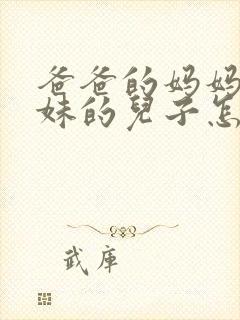 爸爸的妈妈
妹的兒子怎
武庫